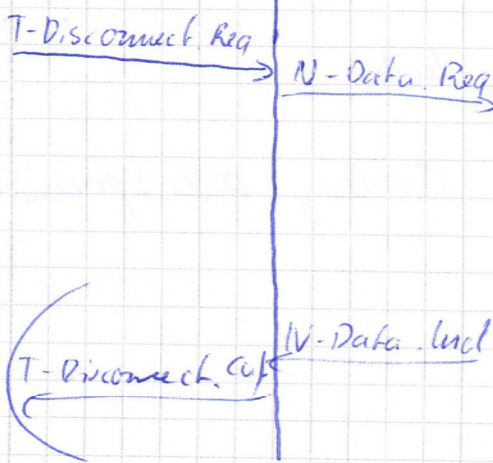 T-Disconnect Req
N-Data.Req
N-Data.Ind
T-Disconnect.Cnf